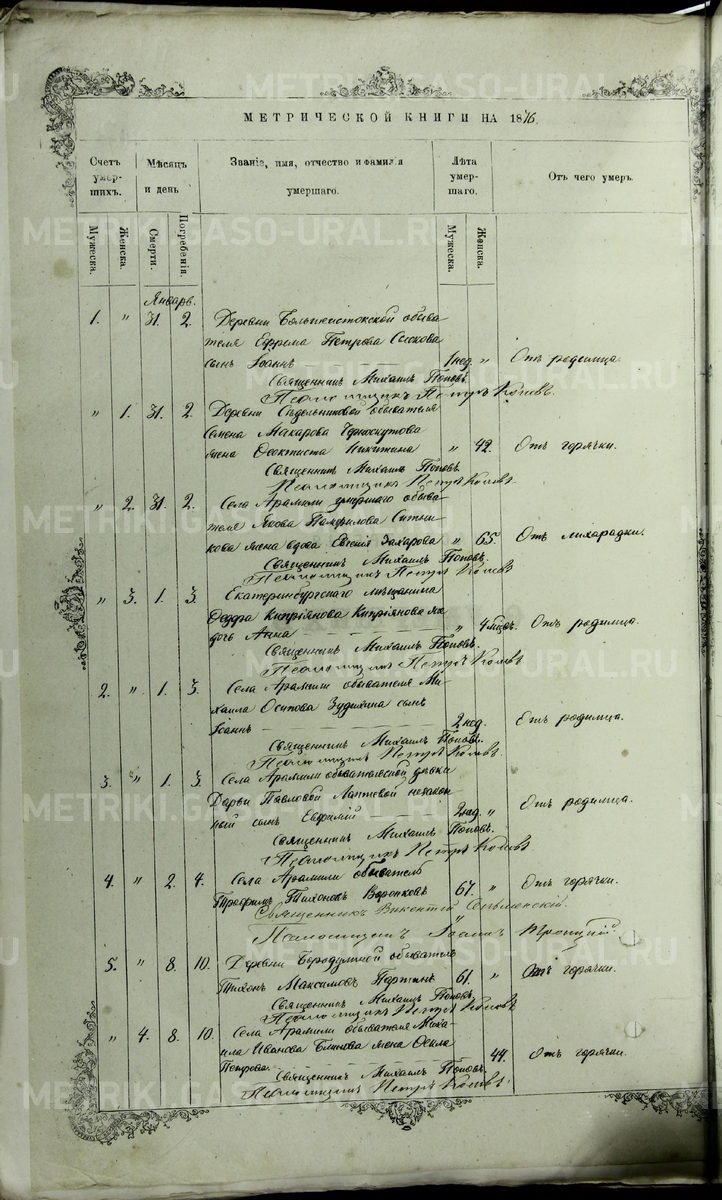 МЕТРИЧЕСКОЙ КНИГИ НА 1876.
Счетъ умер-шихъ. Мѣсяцъ и день Званіе, имя, отчество и фамилія умершаго. Лѣта умер-шаго. Отъ чего умеръ.
Мужеска. Женска. Смерти. Погребенія. Мужеска. Женска.
Январь.
1. " 31. 2. Деревни Большеистокской обыва-
теля Ефрема Петрова Сыскова
сынъ Іоаннъ 1 нед. " Отъ родимца.
Священникъ Михаилъ Поповъ.
Псаломщикъ Петръ
" 1. 31. 2. Деревни Седельниковой обывателя
Семена Макарова Черноскутова
жена Феоктиста Никитина " 42. Отъ горячки.
Священникъ Михаилъ Поповъ
Псаломщикъ Петръ
" 2. 31. 2. Села Арамили умершаго обыва-
теля Якова Памфилова Ситни-
кова жена вдова Евгенія Захарова " 65. Отъ лихарадки.
Священникъ Михаилъ Поповъ.
Псаломщикъ Петръ
" 3. 1. 3. Екатеринбургскаго мѣщанина
Федора Кипріянова Кипріянова
дочь Анна " 4 мѣсъ. Отъ родимца.
Священникъ Михаилъ Поповъ.
Псаломщикъ Петръ
2. " 1. 3. Села Арамили обывателя Ми-
хаила Осипова Зудихина сынъ
Іоаннъ 2 нед. Отъ родимца.
Священникъ Михаилъ Поповъ.
Псаломщикъ Петръ
3. " 1. 3. Села Арамили обывательской дѣвки
Дарьи Павловой Лаптевой незакон-
ный сынъ Евфимій 2 нед. " Отъ родимца.
Священникъ Михаилъ Поповъ.
Псаломщикъ Петръ
4. " 2. 4. Села Арамили обыватель
Трофимъ Тихоновъ Воронковъ 67. " Отъ горячки.
Священникъ Викентій
Псаломщикъ Іоаннъ Троицкій.
5. " 8. 10. Деревни Бородулиной обыватель
Тихонъ Максимовъ Партинъ 61. " Отъ горячки.
Священникъ Михаилъ Поповъ.
Псаломщикъ Петръ
" 4. 8. 10. Села Арамили обывателя Миха-
ила Иванова Блинова жена Фекла
Петрова 44. Отъ горячки.
Священникъ Михаилъ Поповъ.
Псаломщикъ Петръ
METRIKI.GASO-URAL.RU